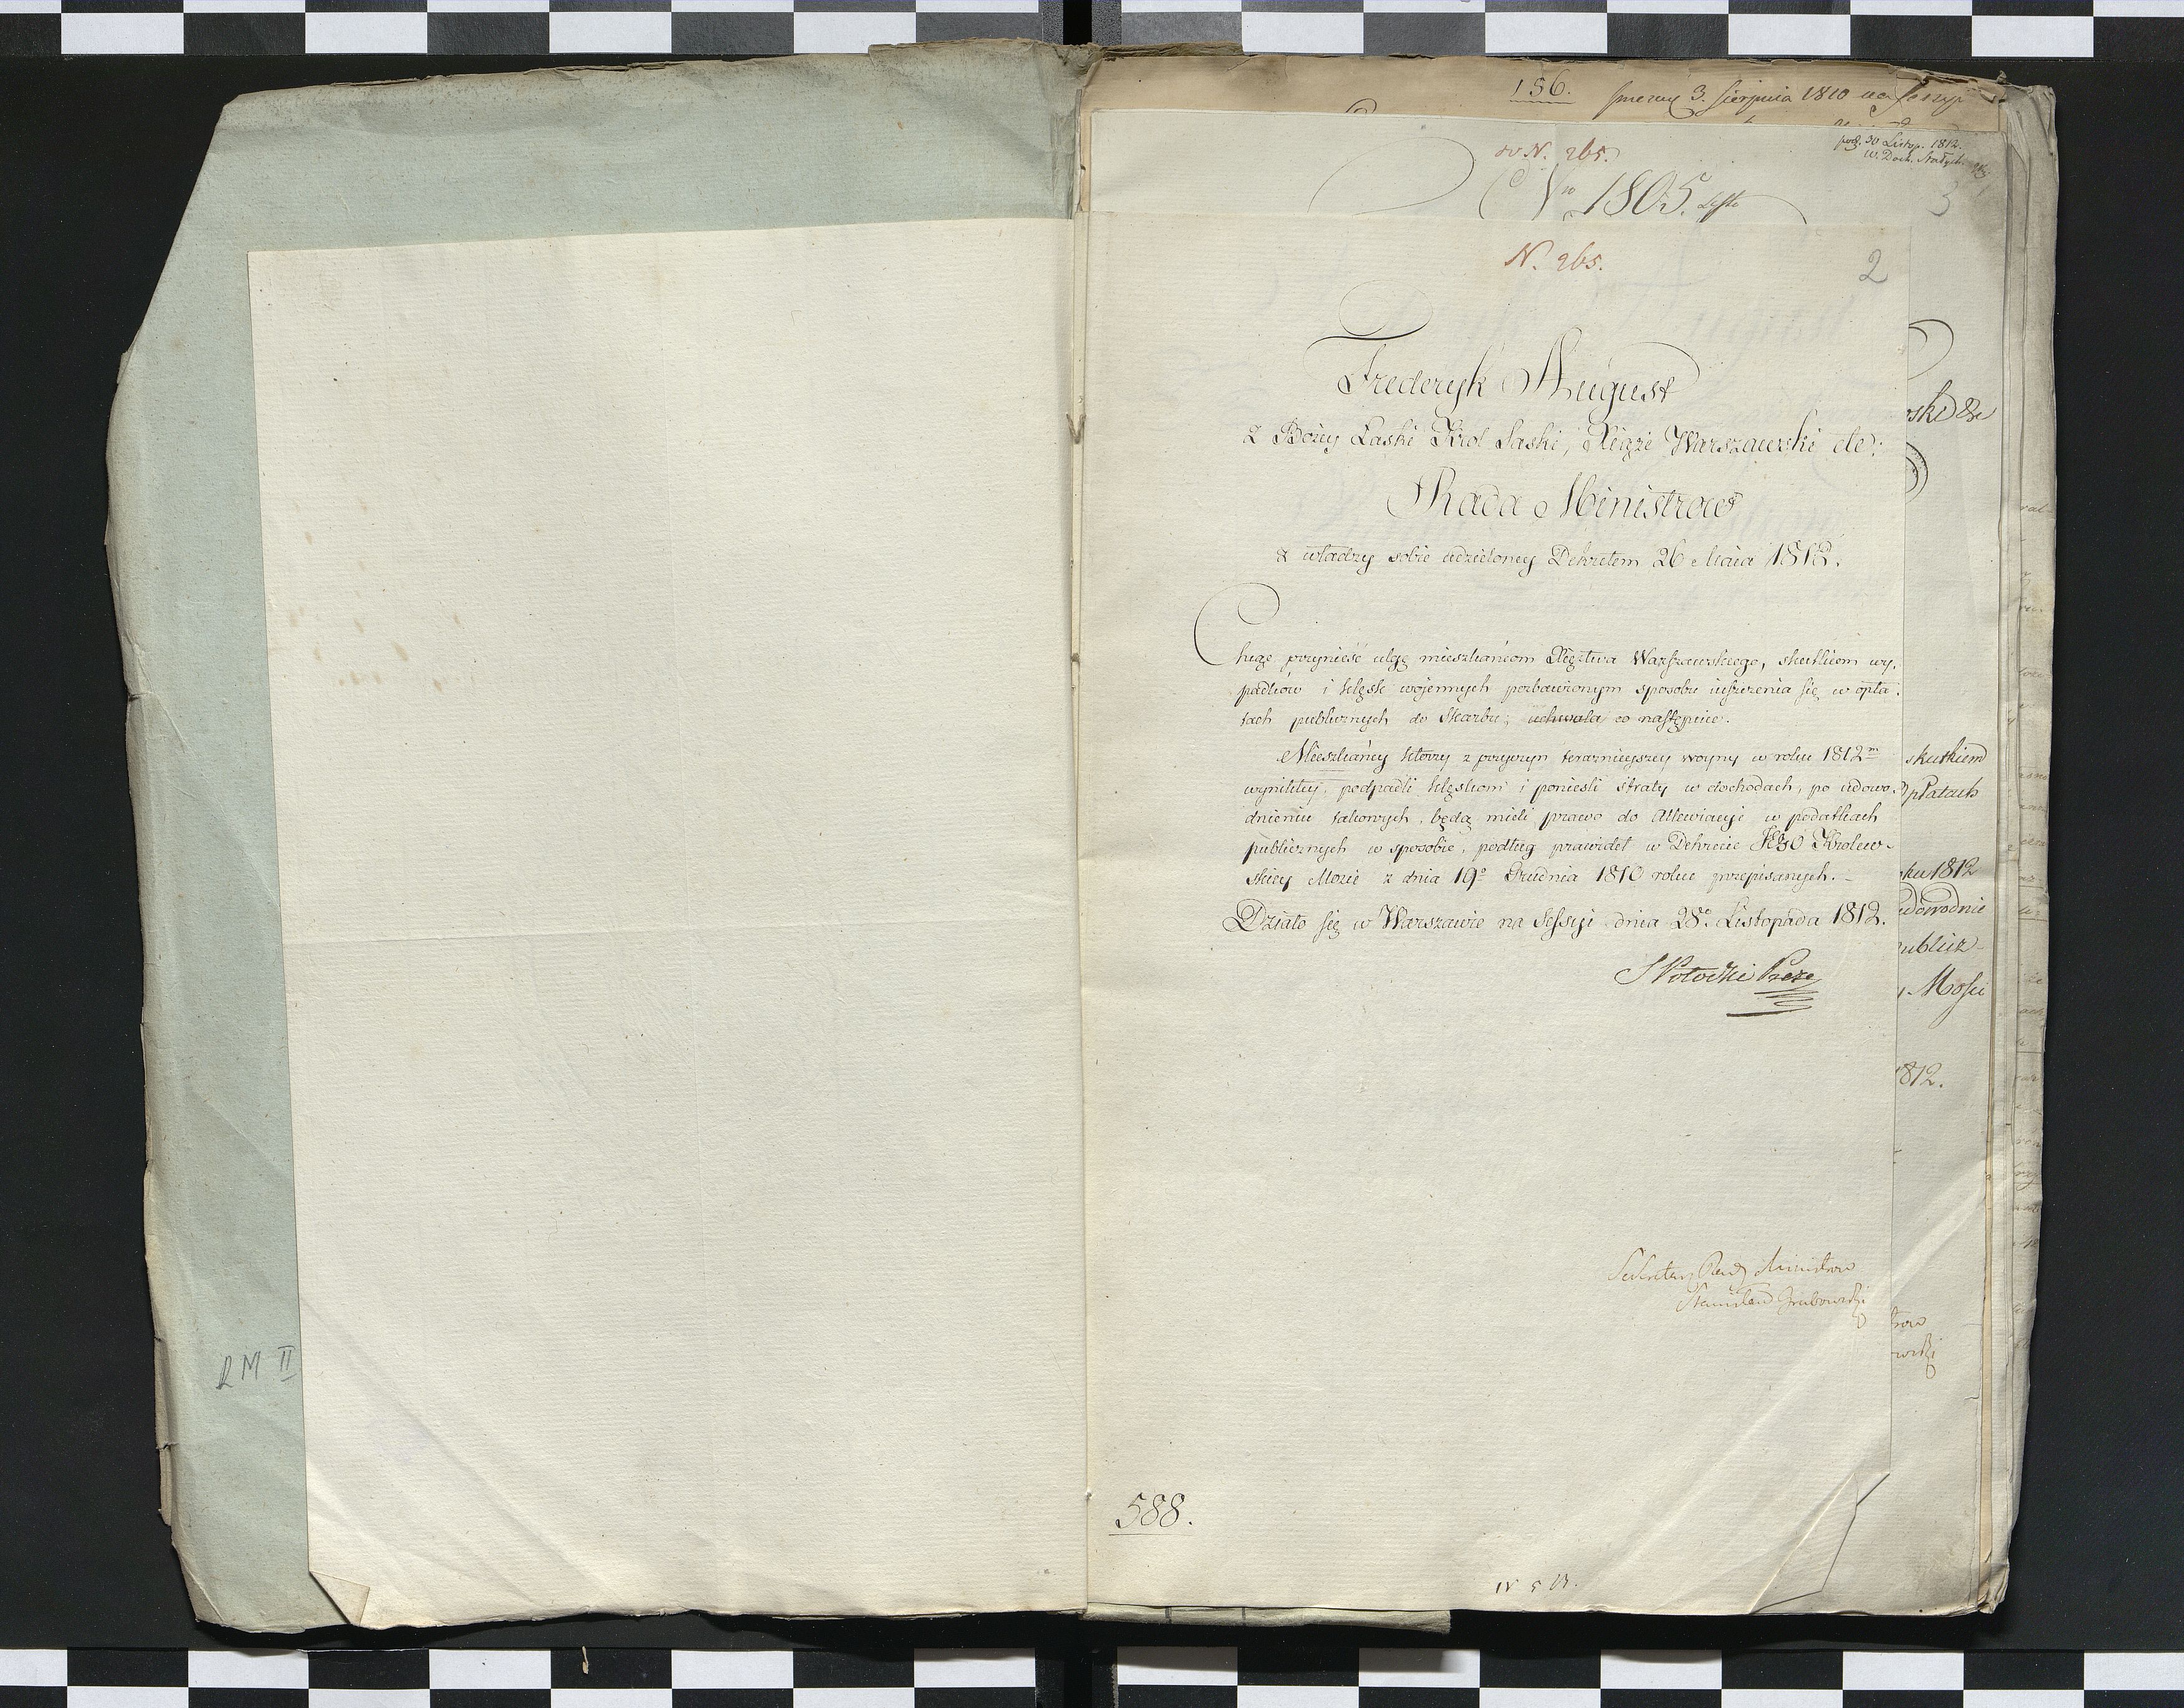 156.
3. Sierpnia 1810
N. 265.
podg. 30 Listop. 1812.
No 1805.
3
N. 265.
2
Frederyk August
z Bożey Łaski Krol Saski, Xiąże Warszawski etc:
Rada Ministrow
z władzy sobie udzieloney Dekretem 26 Maia 1812.
Chcąc przynieść ulgę mieszkańcom Xięztwa Warszawskiego, skutkiem wy-
padków i klęsk wojennych pozbawionym sposobu uiszczenia się w opła-
tach publicznych do Skarbu; uchwala co następuie.
Mieszkańcy którzy z przyczyn teraznieyszey woyny w roku 1812m
wynikłey, podpadli klęskom i ponieśli straty w dochodach, po udowo-
dnieniu takowych, będą mieli prawo do Allewiacyi w podatkach
publicznych w sposobie, podług prawideł w Dekrecie JEGO Krolew-
skiey Mości z dnia 19o Grudnia 1810 roku przepisanych.
Działo się w Warszawie na Sessyi dnia 28o Listopada 1812.
S Potocki Prezs
Sekretarz Rady Ministrow
Stanisław Grabowski
588.
RM II
skutkiem
płatach
ku 1812
udowodnie
ublicz-
Mości
812.